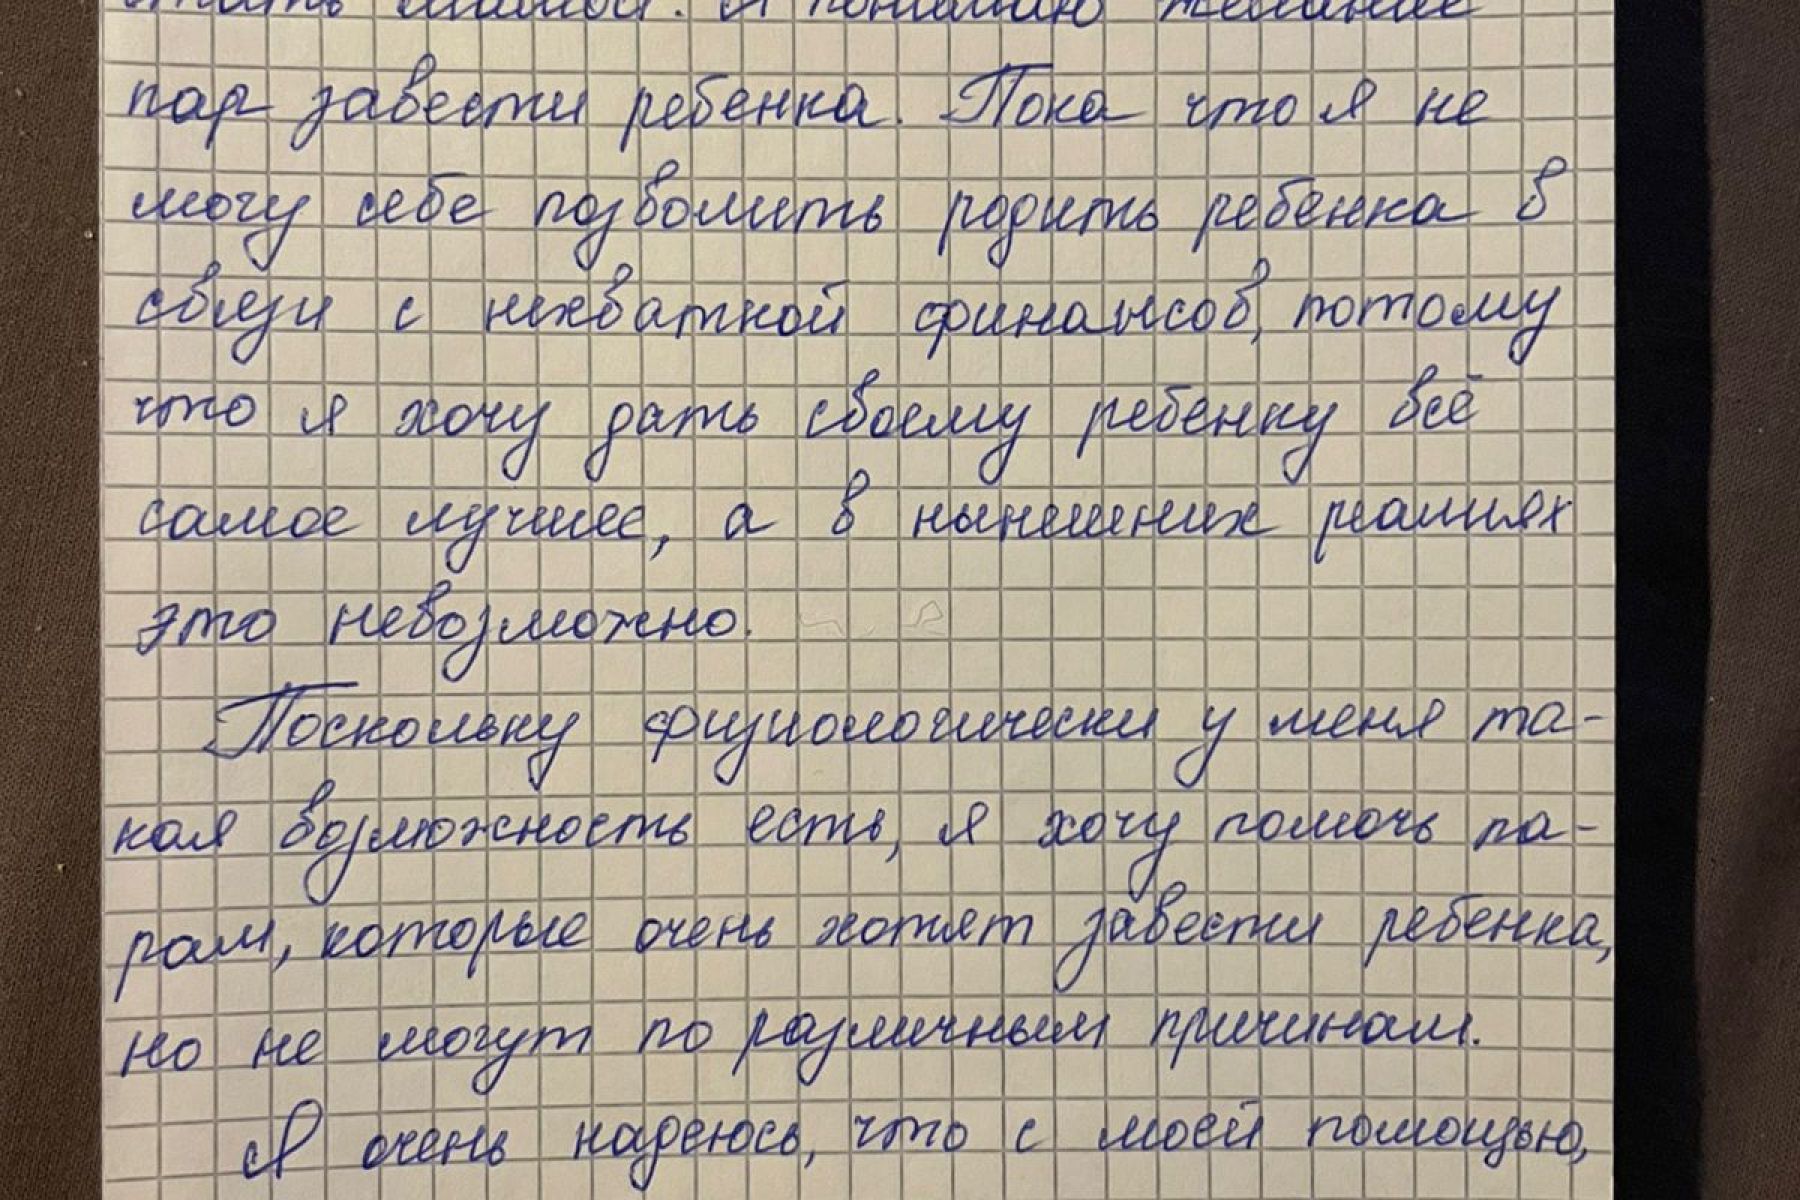 стать мамой. Я понимаю желание
пар завести ребенка. Пока что я не
могу себе позволить родить ребенка в
связи с нехваткой финансов, потому
что я хочу дать своему ребенку всё
самое лучшее, а в нынешних реалиях
это невозможно.
Поскольку физиологически у меня та-
кая возможность есть, я хочу помочь па-
рам, которые очень хотят завести ребенка,
но не могут по различным причинам.
Я очень надеюсь, что с моей помощью,